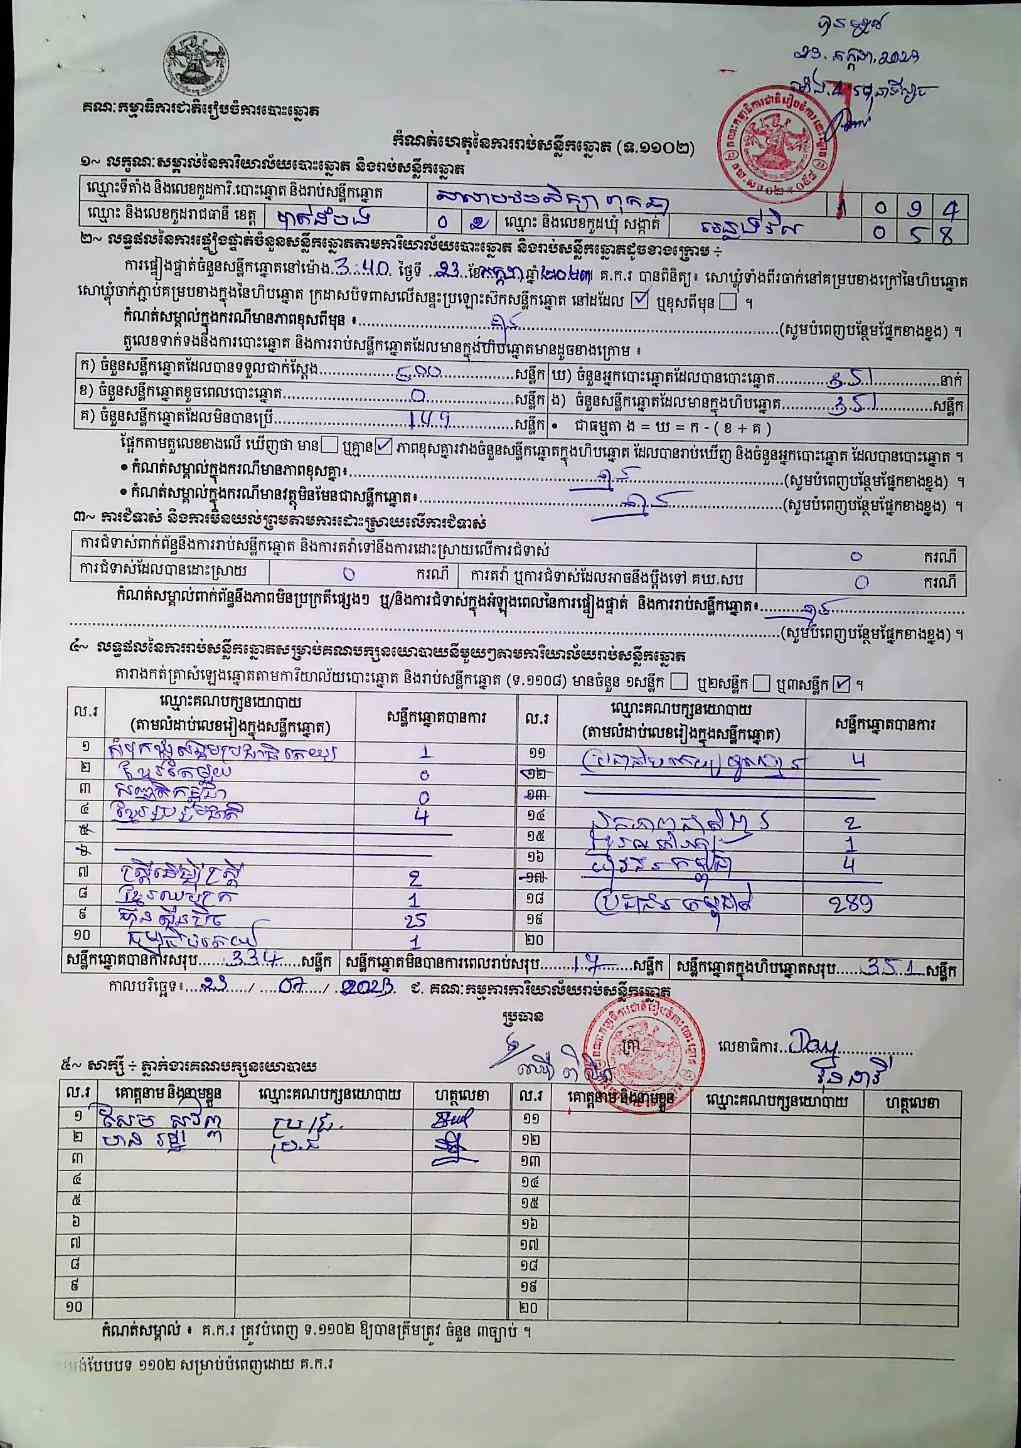 ២៣. កក្កដា. ២០២៣
គណៈកម្មាធិការជាតិរៀបចំការបោះឆ្នោត
កំណត់ហេតុនៃការរាប់សន្លឹកឆ្នោត (ទ.១១០២)
១~ លក្ខណៈសម្គាល់នៃការិយាល័យបោះឆ្នោត និងរាប់សន្លឹកឆ្នោត
ឈ្មោះទីតាំង និងលេខកូដការិ.បោះឆ្នោត និងរាប់សន្លឹកឆ្នោត 1 0 9 4
ឈ្មោះ និងលេខកូដរាជធានី ខេត្ត បាត់ដំបង 0 2 ឈ្មោះ និងលេខកូដឃុំ សង្កាត់ 0 5 8
២~ លទ្ធផលនៃការផ្ទៀងផ្ទាត់ចំនួនសន្លឹកឆ្នោតតាមការិយាល័យបោះឆ្នោត និងរាប់សន្លឹកឆ្នោតដូចខាងក្រោម ÷
ការផ្ទៀងផ្ទាត់ចំនួនសន្លឹកឆ្នោតនៅម៉ោង 3:40 ថ្ងៃទី 23 ខែ កក្កដា ឆ្នាំ ២០២៣ គ.ក.រ បានពិនិត្យ៖ សោឃ្លុំទាំងពីរចាក់នៅគម្របខាងក្រៅនៃហិបឆ្នោត
សោឃ្លុំចាក់ភ្ជាប់គម្របខាងក្នុងនៃហិបឆ្នោត ក្រដាសបិទពាសលើសន្ទះប្រឡោះស៊កសន្លឹកឆ្នោត នៅដដែល ☑ ឬខុសពីមុន ☐ ។
កំណត់សម្គាល់ក្នុងករណីមានភាពខុសពីមុន ៖ គ្មាន (សូមបំពេញបន្ថែមផ្នែកខាងខ្នង) ។
តួលេខទាក់ទងនឹងការបោះឆ្នោត និងការរាប់សន្លឹកឆ្នោតដែលមានក្នុងហិបឆ្នោតមានដូចខាងក្រោម ៖
ក) ចំនួនសន្លឹកឆ្នោតដែលបានទទួលជាក់ស្តែង 500 សន្លឹក ឃ) ចំនួនអ្នកបោះឆ្នោតដែលបានបោះឆ្នោត 351 នាក់
ខ) ចំនួនសន្លឹកឆ្នោតខូចពេលបោះឆ្នោត 0 សន្លឹក ង) ចំនួនសន្លឹកឆ្នោតដែលមានក្នុងហិបឆ្នោត 351 សន្លឹក
គ) ចំនួនសន្លឹកឆ្នោតដែលមិនបានប្រើ 149 សន្លឹក • ជាធម្មតា ង = ឃ = ក - ( ខ + គ )
ផ្អែកតាមតួលេខខាងលើ ឃើញថា មាន ☐ ឬគ្មាន ☑ ភាពខុសគ្នារវាងចំនួនសន្លឹកឆ្នោតក្នុងហិបឆ្នោត ដែលបានរាប់ឃើញ និងចំនួនអ្នកបោះឆ្នោត ដែលបានបោះឆ្នោត ។
• កំណត់សម្គាល់ក្នុងករណីមានភាពខុសគ្នា៖ គ្មាន (សូមបំពេញបន្ថែមផ្នែកខាងខ្នង) ។
• កំណត់សម្គាល់ក្នុងករណីមានវត្ថុមិនមែនជាសន្លឹកឆ្នោត៖ គ្មាន (សូមបំពេញបន្ថែមផ្នែកខាងខ្នង) ។
៣~ ការជំទាស់ និងការមិនយល់ព្រមតាមការដោះស្រាយលើការជំទាស់
ការជំទាស់ពាក់ព័ន្ធនឹងការរាប់សន្លឹកឆ្នោត និងការតវ៉ាទៅនឹងការដោះស្រាយលើការជំទាស់ 0 ករណី
ការជំទាស់ដែលបានដោះស្រាយ 0 ករណី ការតវ៉ា ឬការជំទាស់ដែលអាចនឹងប្តឹងទៅ គឃ.សប 0 ករណី
កំណត់សម្គាល់ពាក់ព័ន្ធនឹងភាពមិនប្រក្រតីផ្សេងៗ ឬ/និងការជំទាស់ក្នុងអំឡុងពេលនៃការផ្ទៀងផ្ទាត់ និងការរាប់សន្លឹកឆ្នោត៖ គ្មាន
(សូមបំពេញបន្ថែមផ្នែកខាងខ្នង) ។
៤~ លទ្ធផលនៃការរាប់សន្លឹកឆ្នោតសម្រាប់គណបក្សនយោបាយនីមួយៗតាមការិយាល័យរាប់សន្លឹកឆ្នោត
តារាងកត់ត្រាសំឡេងឆ្នោតតាមការិយាល័យបោះឆ្នោត និងរាប់សន្លឹកឆ្នោត (ទ.១១០៨) មានចំនួន ១សន្លឹក ☐ ឬ២សន្លឹក ☐ ឬ៣សន្លឹក ☑ ។
ល.រ ឈ្មោះគណបក្សនយោបាយ (តាមលំដាប់លេខរៀងក្នុងសន្លឹកឆ្នោត) សន្លឹកឆ្នោតបានការ ល.រ ឈ្មោះគណបក្សនយោបាយ (តាមលំដាប់លេខរៀងក្នុងសន្លឹកឆ្នោត) សន្លឹកឆ្នោតបានការ
១ 1 ១១ 4
២ ខ្មែរតែមួយ 0 ១២
៣ 0 ១៣
៤ 4 ១៤ 2
៥ ១៥ 1
៦ ១៦ 4
៧ ស្ត្រីដើម្បីស្ត្រី 2 ១៧
៨ 1 ១៨ ប្រជាជនកម្ពុជា 289
៩ ហ្វ៊ុនស៊ិនប៉ិច 25 ១៩
១០ 1 ២០
សន្លឹកឆ្នោតបានការសរុប 334 សន្លឹក សន្លឹកឆ្នោតមិនបានការពេលរាប់សរុប 17 សន្លឹក សន្លឹកឆ្នោតក្នុងហិបឆ្នោតសរុប 351 សន្លឹក
កាលបរិច្ឆេទ៖ 23 / 07 / 2023 ជ. គណៈកម្មការការិយាល័យរាប់សន្លឹកឆ្នោត
ប្រធាន
ត្រា លេខាធិការ
៥~ សាក្សី ÷ ភ្នាក់ងារគណបក្សនយោបាយ
ល.រ គោត្តនាម និងនាមខ្លួន ឈ្មោះគណបក្សនយោបាយ ហត្ថលេខា ល.រ គោត្តនាម និងនាមខ្លួន ឈ្មោះគណបក្សនយោបាយ ហត្ថលេខា
១ ១១
២ ១២
៣ ១៣
៤ ១៤
៥ ១៥
៦ ១៦
៧ ១៧
៨ ១៨
៩ ១៩
១០ ២០
កំណត់សម្គាល់ ៖ គ.ក.រ ត្រូវបំពេញ ទ.១១០២ ឱ្យបានត្រឹមត្រូវ ចំនួន ៣ច្បាប់ ។
បែបបទ ១១០២ សម្រាប់បំពេញដោយ គ.ក.រ